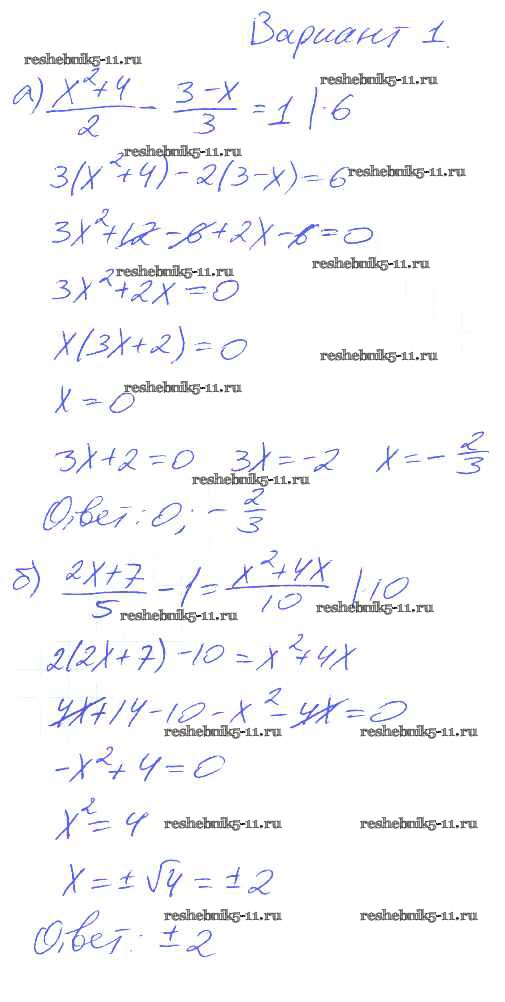 Вариант 1.
reshebnik5-11.ru
reshebnik5-11.ru
а) (x²+4)/2 - (3-x)/3 = 1 |·6
reshebnik5-11.ru
3(x²+4)-2(3-x)=6 reshebnik5-11.ru
3x²+12-6+2x-6=0
reshebnik5-11.ru
reshebnik5-11.ru
3x²+2x=0
x(3x+2)=0 reshebnik5-11.ru
reshebnik5-11.ru
x=0
3x+2=0 3x=-2 x=-2/3
reshebnik5-11.ru
Ответ: 0; -2/3
б) (2x+7)/5 - 1 = (x²+4x)/10 |·10
reshebnik5-11.ru reshebnik5-11.ru
2(2x+7)-10=x²+4x
4x+14-10-x²-4x=0
reshebnik5-11.ru reshebnik5-11.ru
-x²+4=0
x²=4 reshebnik5-11.ru reshebnik5-11.ru
x=±√4=±2
reshebnik5-11.ru reshebnik5-11.ru
Ответ: ±2